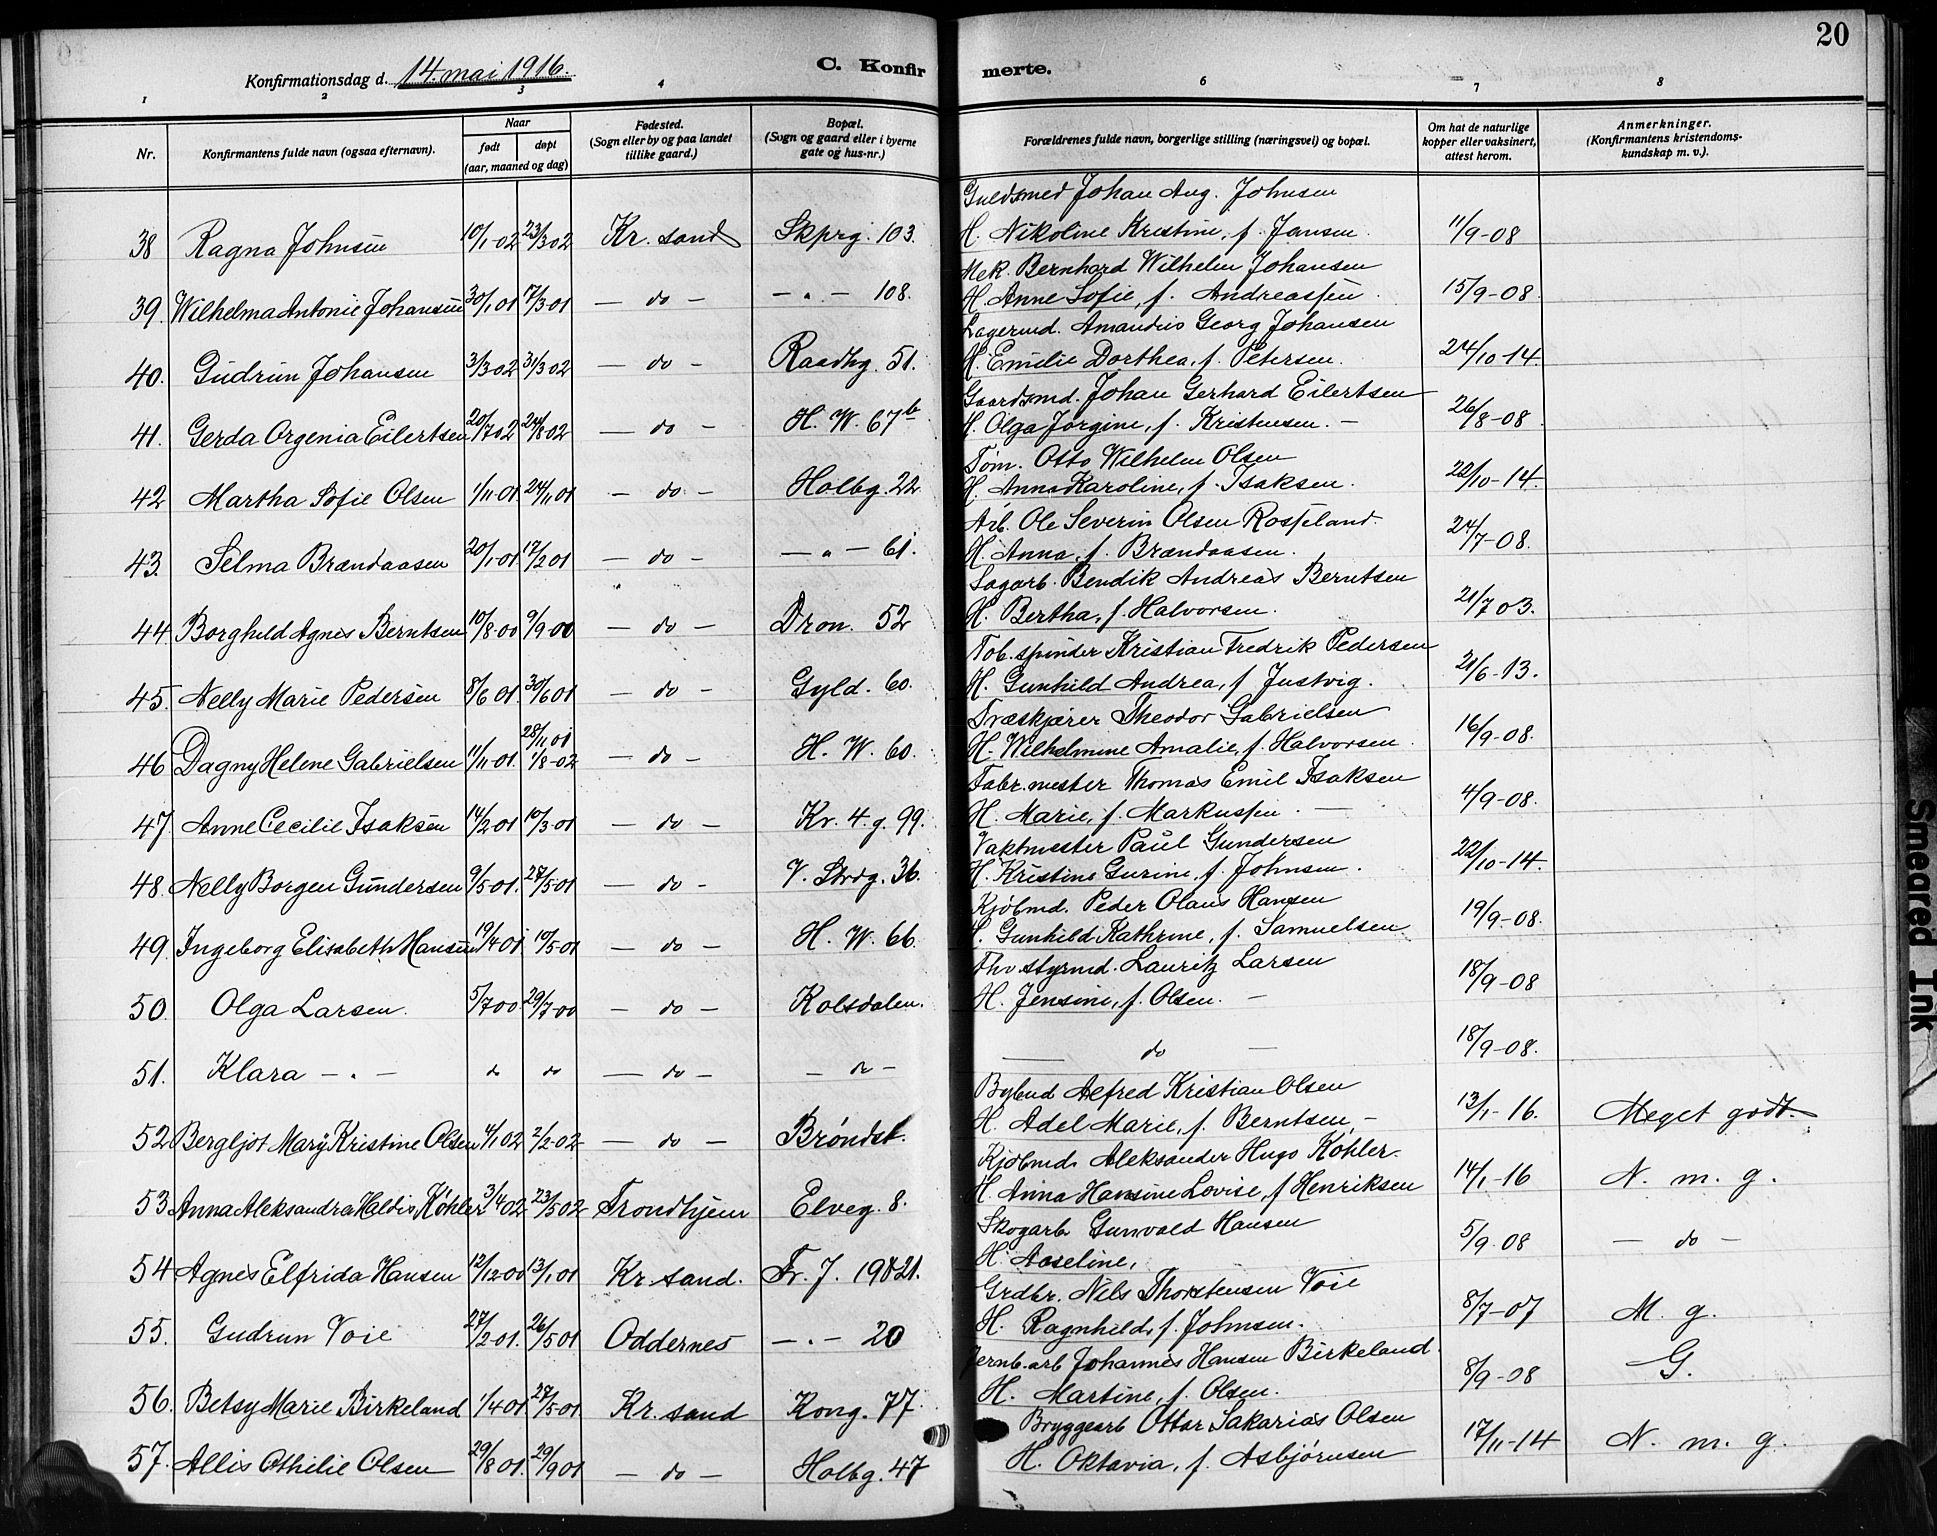 20
Konfirmationsdag d. 14. mai 1916.
C. Konfirmerte.
1 2 3 4 5 6 7 8
Nr.
Konfirmantens fulde navn (ogsaa efternavn).
Naar
født
døpt
(aar, maaned og dag)
Fødested.
(Sogn eller by og paa landet
tillike gaard.)
Bopæl.
(Sogn og gaard eller i byerne
gate og hus-nr.)
Forældrenes fulde navn, borgerlige stilling (næringsvei) og bopæl.
Om hat de naturlige
kopper eller vaksinert,
attest herom.
Anmerkninger.
(Konfirmantens kristendoms-
kundskap m. v.).
Guldsmed Johan Aug. Johnsen
38 Ragna Johnsen 10/1-02 23/3 02 Kr. sand Skprg. 103. H. Nikoline Kristine, f. Jansen. 11/9-08
Mek. Bernhard Wilhelm Johansen
39. Wilhelma Antonie Johansen 30/1 01 17/3 01 - do - - " - 108. H. Anne Sofie, f. Andreassen. 15/9-08.
Lagermd. Amandus Georg Johansen
40. Gudrun Johansen 3/3 02 31/3 02 - do - Raadhg. 51. H. Emilie Dorthea, f. Petersen. 24/10-14.
Gaardsmd. Johan Gerhard Eilertsen
41. Gerda Orgenia Eilertsen 20/7 02 24/8 02 - do - H. W. 67b H. Olga Jørgine, f. Kristensen. - 26/8-08
Tøm. Otto Wilhelm Olsen
42 Martha Sofie Olsen 1/11-01 24/11 01 - do - Holbg. 22 H. Anna Karoline, f. Isaksen. 22/10-14.
Arb. Ole Severin Olsen Rosseland.
43. Selma Brændaasen 20/1 01 17/2 01 - do - - " - 61. H. Anna, f. Brændaasen. 24/7-08.
Sagarb. Bendik Andreas Berntsen
44. Borghild Agnes Berntsen 10/8-00 9/9-00 - do - Dron. 52 H. Bertha, f. Halvorsen. 21/7 03.
Tob. spinder Kristian Fredrik Pedersen
45. Nelly Marie Pedersen 8/6 01 30/6 01 - do - Gyld. 60. H. Gunhild Andrea, f. Justvig. 21/6-13.
Træskjærer Theodor Gabrielsen
46 Dagny Helene Gabrielsen 11/11-01. 28/11 01 1/8-02 - do - H. W. 60. H. Wilhelmine Amalie, f. Halvorsen. 16/9-08.
Fabr. mester Thomas Emil Isaksen
47. Anne Cecilie Isaksen 14/2 01 10/3-01 - do - Kr. 4. g. 99. H. Marie, f. Markussen. - 4/9-08.
Vaktmester Paul Gundersen
48. Nelly Borgen Gundersen 9/5-01. 27/5-01 - do - V. Strdg. 36. H. Kristine Gurine, f. Johnsen. 22/10-14.
Kjøbmd. Peder Olaus Hansen
49. Ingeborg Elisabeth Hansen 19/4 01. 10/5-01 - do - H. W. 66. H. Gunhild Kathrine, f. Samuelsen. 19/9-08.
Fhv. styrmd. Lauritz Larsen
50. Olga Larsen. 5/7 00. 29/7-00 - do - Kolsdalen. H. Jensine, f. Olsen. - 18/9-08
51. Klara - " - do do - do - - do - - do - 18/9-08.
Bybud Alfred Kristian Olsen
52 Bergljot Mary Kristine Olsen 4/1 02 2/2-02 - do - Brøndst. H. Adel Marie, f. Berntsen, - 13/1-16. Meget godt.
Kjøbmd. Aleksander Hugo Köhler.
53. Anna Aleksandra Haldis Köhler 3/4 02. 23/5 02 Trondhjem Elveg. 8. H. Anna Hansine Lovise, f. Henriksen 14/1-16 N. m. g.
Skogarb Gunvald Hansen
54 Agnes Elfrida Hansen 12/12-00 13/1 01 Kr. sand. Fr. J. 19 & 21. H. Aaseline, 5/9-08 - do -
Grdbr. Nils Thorstensen Voie
55. Gudrun Voie 27/2-01. 26/5 01 Oddernes - " - 20 H. Ragnhild, f. Johnsen. 8/7-07 M. g.
Jernb. arb Johannes Hansen Birkeland.
56. Betsy Marie Birkeland 1/4 01. 27/5-01. Kr. sand Kong. 77. H. Martine, f. Olsen. 8/9-08 G.
Bryggearb Ottar Sakarias Olsen
57. Allis Othilie Olsen 29/8 01. 29/9 01 - do - Holbg. 47 H. Oktavia, f. Asbjørnsen 17/11-14 N. m. g.
Smeared Ink